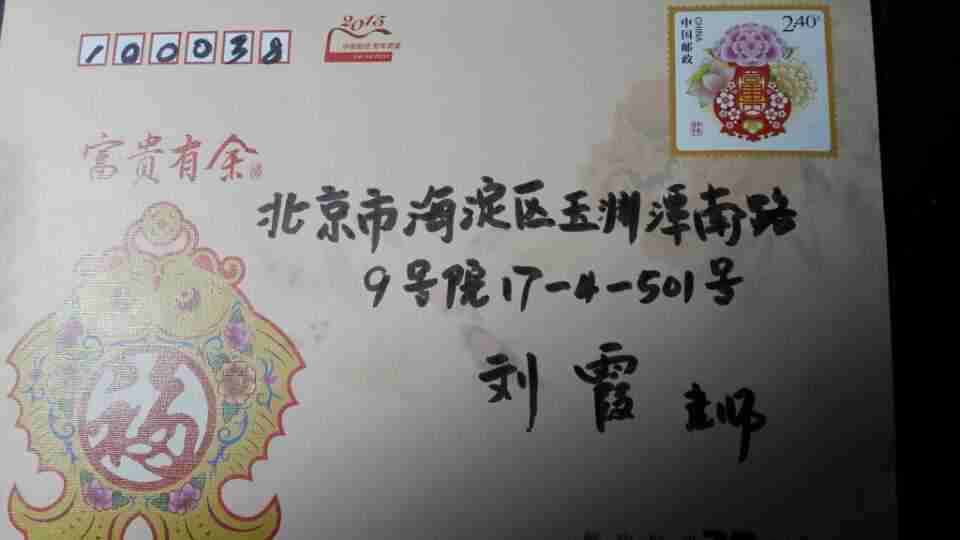 100038
2015
中国邮政
CHINA
2.40元
富
富贵有余
北京市海淀区玉渊潭南路
9号院17-4-501号
刘霞 老师
福